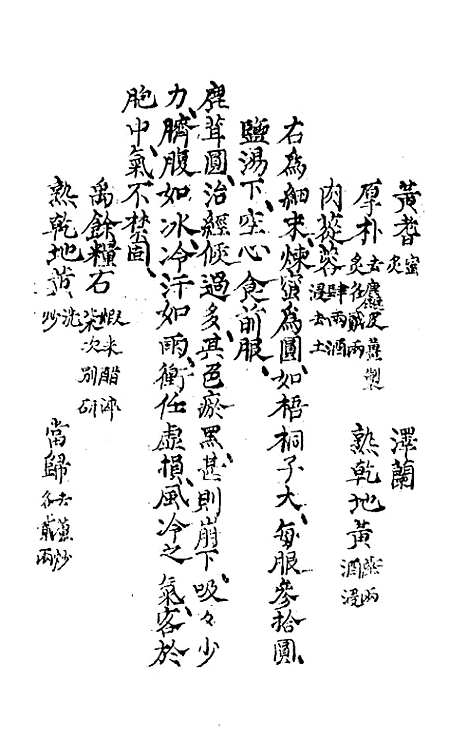 黃耆蜜炙 澤蘭
厚朴去麄皮薑製炙各貳兩 熟乾地黃燕兩酒浸
肉蓯蓉肆兩酒浸去土
右爲細末煉蜜爲圓如梧桐子大每服參拾圓
鹽湯下空心食前服
鹿茸圓治經候過多其色瘀黑甚則崩下吸々少
力臍腹如冰冷汗如雨衝任虛損風冷之氣客於
胞中氣不禁固
禹餘糧石煆米醋淬柒次別研 當歸去蘆炒各貳兩
熟乾地黃洗炒